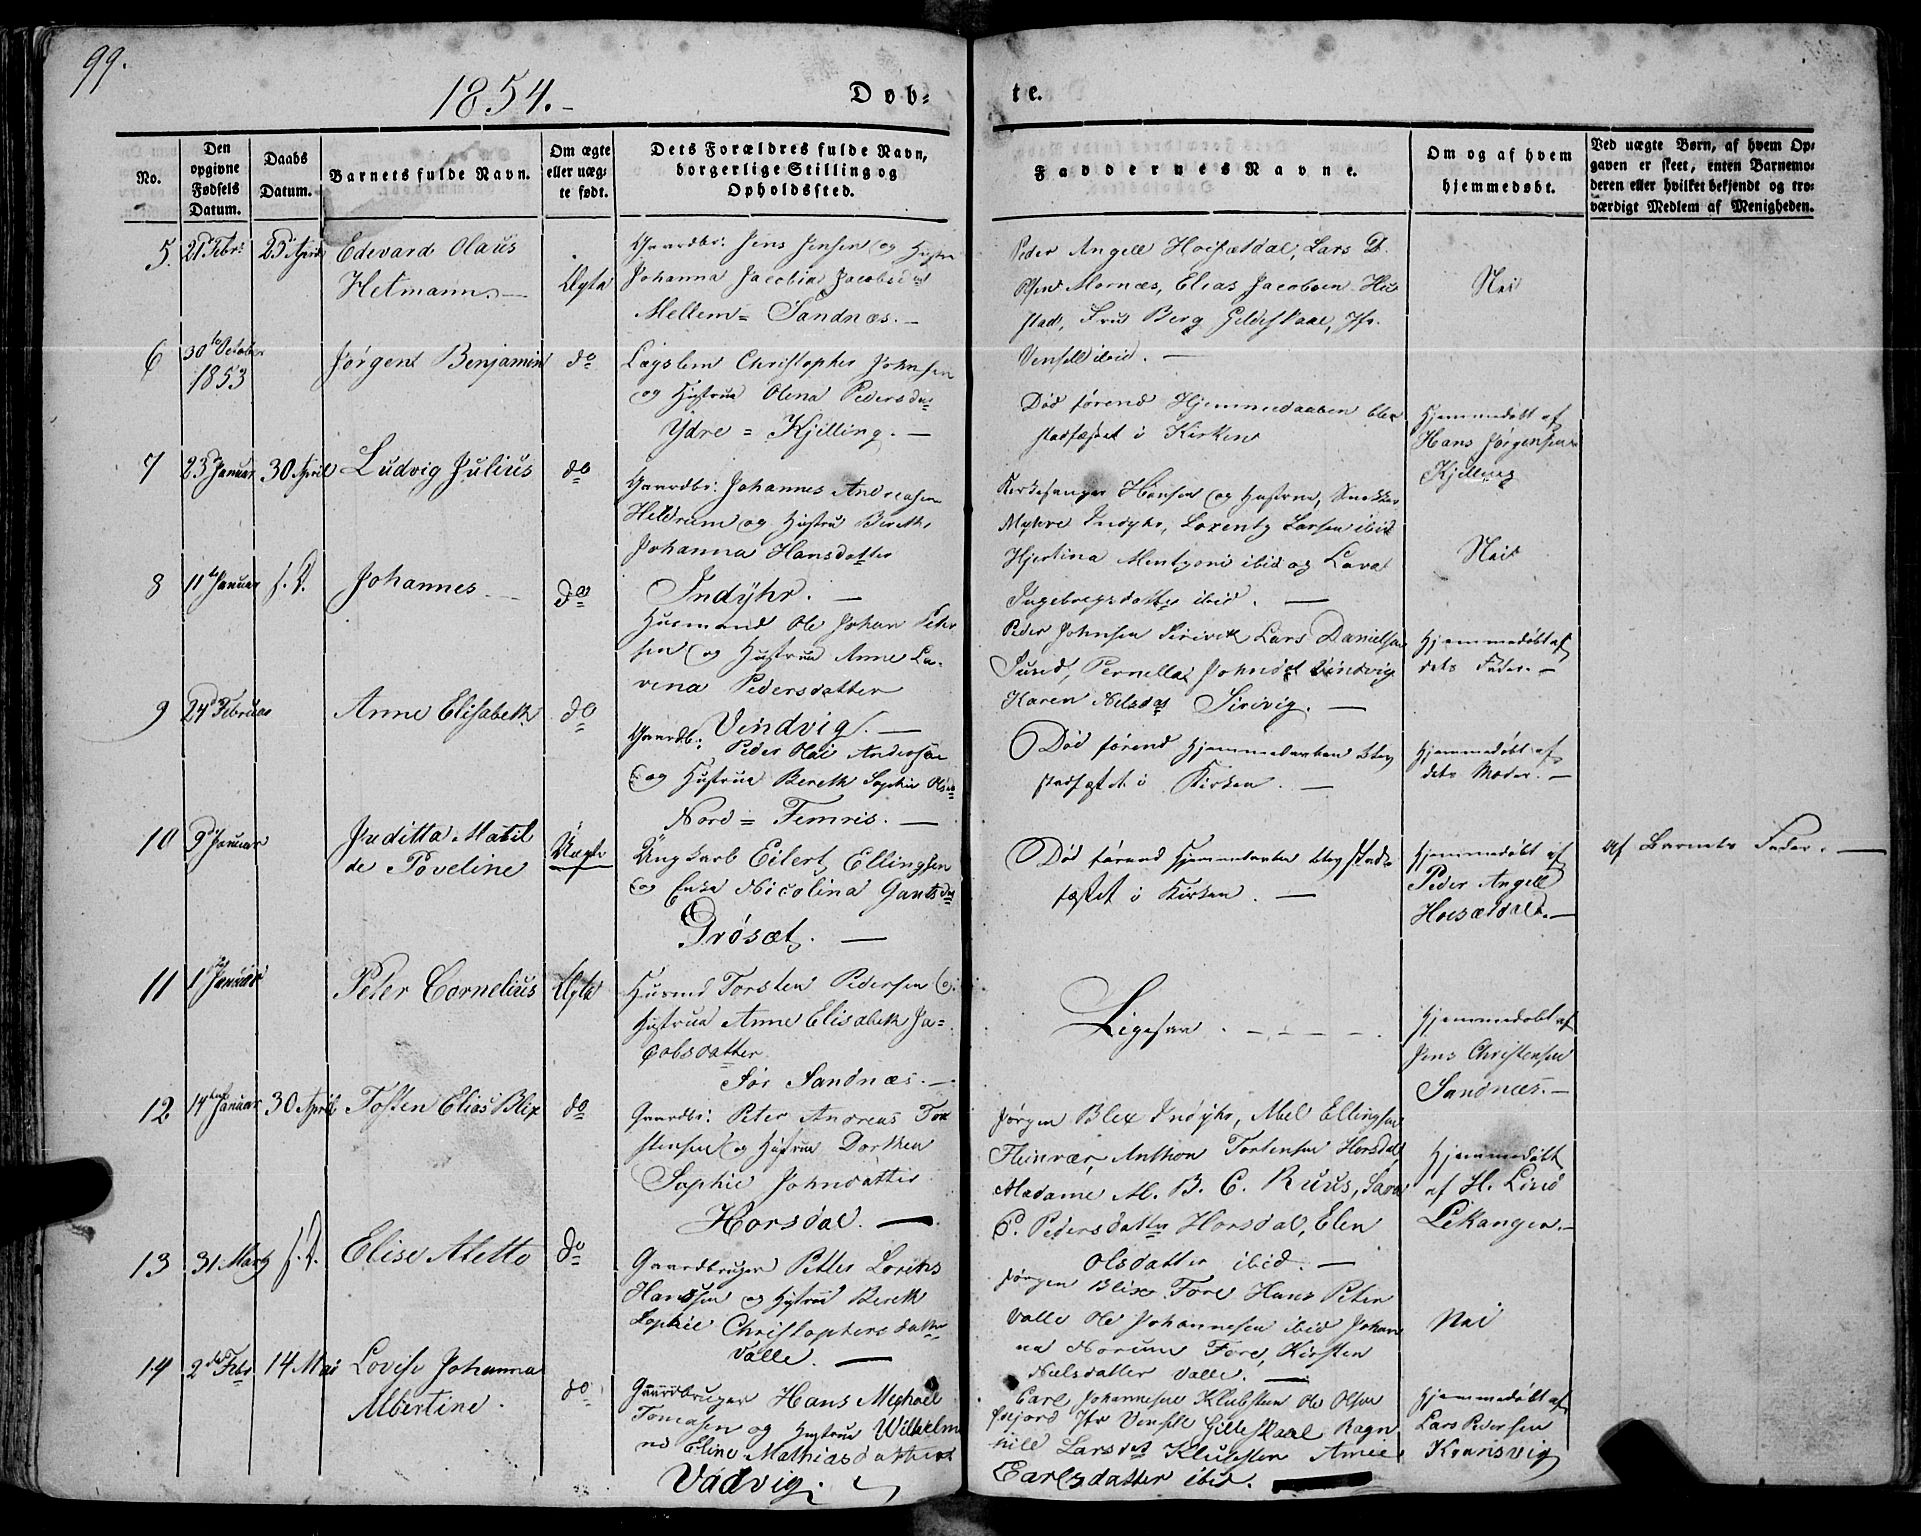 99.
1854.-
Døb-
te.
No.
Den opgivne Fødsels Datum.
Daabs Datum.
Barnets fulde Navn.
Om ægte eller uægte født.
Dets Forældres fulde Navn, borgerlige Stilling og Opholdssted.
Faddernes Navne.
Om og af hvem hjemmedøbt.
Ved uægte Børn, af hvem Opgaven er skeet, enten Barnemoderen eller hvilket bekjendt og troværdigt Medlem af Menigheden.
5. 21 Febr: 23 April Edevard Olaus
Hetmann.
Ægte
Gaardbr: Jens Jensen og Hustru
Johanna Jacobia Jacobsdat
Mellem= Sandnæs.
Peder Angell Hoisætdal, Lars D.
Olsen Mornæs, Elias Jacobsen Hu
stad, Fru Berg Gildeskaal, Jfr.
Vensell ibid.
Nei
6 30te October
1853
Jørgen Benjamin do
Lægslem Christopher Johnsen
og Hustrue Olena Pedersdat
Ydre = Kjelling.
Død førend Hjemmedaaben blev
stadfæstet i Kirken
Hjemmedøbt af
Hans Jørgensen
Kjelling
7 23 Januar 30 April Ludvig Julius do
Gaardbr: Johannes Andreasen
Heldrum og Hustru Bereth
Johanna Hansdatter
Indyhr.
Kirkesanger Hansen og Hustrue, Snekker
Myhre Indyhr, Lorentz Larsen ibid
Hjertina Mentzoni ibid og Lava
Ingebregsdatter ibid.
Nei
8 11te Januar s. D. Johannes do
Husmand Ole Johan Peder
sen og Hustrue Anne La-
vina Pedersdatter
Vendvig.
Peder Johnsen Sirivik Lars Danielsen
Sund, Pernella Johnsdat Vindvig
Karen Nilsdat Sirivig.
Hjemmedøbt af
dets Fader.
9 24 Februar Anne Elisabeth do
Gaardb: Peder Olai Andersen
og Hustrue Bereth Sophie Olsd
Nord = Femris.
Død førend Hjemmedaaben blev
stadfæstet i Kirken.
Hjemmedøbt af
dets Moder.
10 9 Januar Juditta Matil
de Poveline
Uægte
Ungkarl Eilert Ellingsen
og Enke Nicolina Gantsdat
Prøsæt.
Død førend Hjemmedaaben blev stad-
fæstet i Kirken.
Hjemmedøbt af
Peder Angell
Hoisætdal.
Af Barnets Fader.
11 1 Januar Peter Cornelius Ægte
Husmd Torsten Pedersen og
Hustrue Anne Elisabeth Ja-
cobsdatter
Sør Sandnæs.
Ligesaa.
Hjemmedøbt af
Jens Christensen
Sandnæs.
12 14 Januar 30 April Tosten Elias Blix do
Gaardbr: Peter Andreas Tor
stensen og Hustrue Dorthea
Sophie Johnsdatter
Horsdal.
Jørgen Blix Indyhr, Abel Ellingsen
Fleinvær, Anthon Tortensen Horsdal
Madame M. B. C. Ruus, Sara
P. Pedersdatter Horsdal, Elen
Olsdatter ibid.
Hjemmedøbt
af H. Lind
Lekangen.
13 31 Marty s. D. Elise Aletto do
Gaardbruger Petter Lorents
Hanssen og Hustrue Bereth
Sophie Christophersdatter
Valle.
Jørgen Blix Fore, Hans Peter
Valle Ole Johannesen ibid Johan
na Norum Fore, Kirsten
Nielsdatter Valle.
Nei
14 2 Febr 14 Mai Lovise Johanna
Albertine. do
Gaardbruger Hans Michael
Tomasen og Hustrue Wilhelmi
na Eline Mathiasdatter
Vådvig.
Carl Johannesen Klubsten Ole Olsen
Jfr Vensell Gilleskaal Ragn
hild Larsdat Klubsten Anne
Earlsdatter ibid.
Hjemmedøbt af
Lars Pedersen
Kvansvig